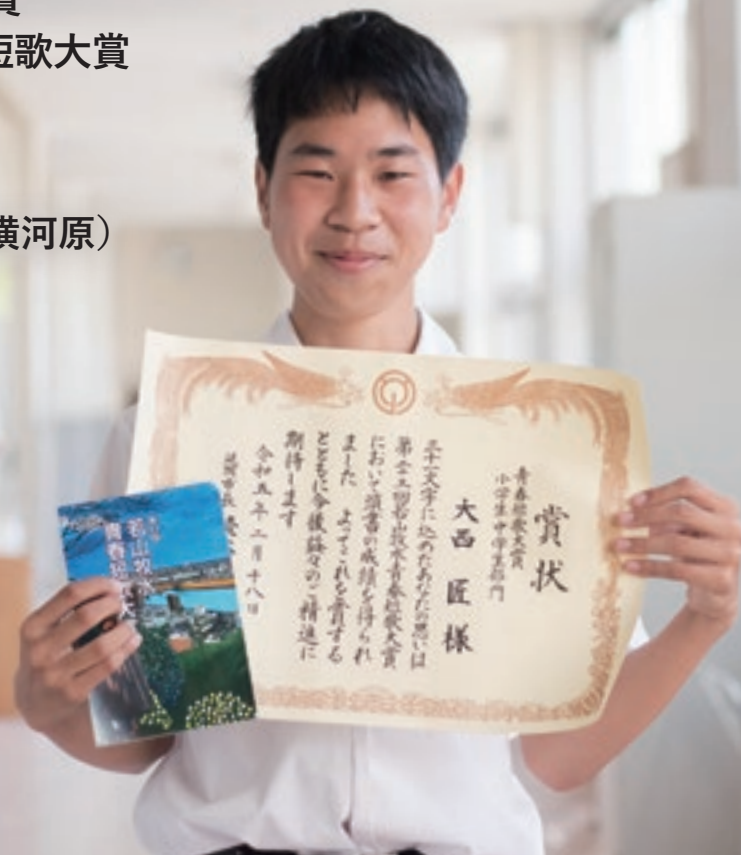 賞
短歌大賞
横河原）
賞状
青春短歌大賞
小学生・中学生部門
大西 匠 様
三十一文字に込めたあなたの思いは
において頭書の成績を得られ
ました よってこれを賞する
とともに今後益々のご精進に
期待します
令和五年二月十八日
若山牧水
青春短